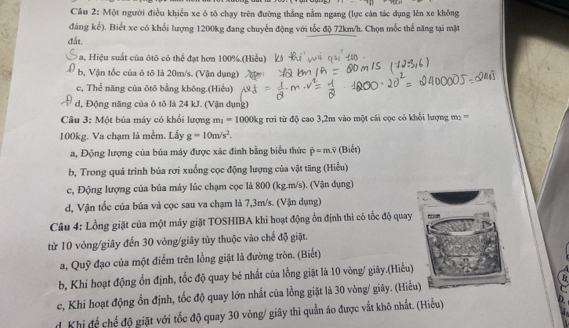 Câu 2: Một người điều khiển xe ô tô chạy trên đường thẳng nằm ngang (lực cản tác dụng lên xe không
đáng kể). Biết xe có khối lượng 1200kg đang chuyển động với tốc độ 72km/h. Chọn mốc thế năng tại mặt
đất.
S a, Hiệu suất của ôtô có thể đạt hơn 100%.(Hiểu)
Đ b, Vận tốc của ô tô là 20m/s. (Vận dụng) 72 km/h = 20 m/s (72:3,6)
c, Thế năng của ôtô bằng không.(Hiểu) Wđ = 1/2 . m . v² = 1/2 . 1200 . 20² = 240000J
d, Động năng của ô tô là 24 kJ. (Vận dụng)
Câu 3: Một búa máy có khối lượng m₁ = 1000kg rơi từ độ cao 3,2m vào một cái cọc có khối lượng m₂ =
100kg. Va chạm là mềm. Lấy g = 10m/s².
a, Động lượng của búa máy được xác đinh bằng biểu thức p⃗ = m.v⃗ (Biết)
b, Trong quá trình búa rơi xuống cọc động lượng của vật tăng (Hiểu)
c, Động lượng của búa máy lúc chạm cọc là 800 (kg.m/s). (Vận dụng)
d, Vận tốc của búa và cọc sau va chạm là 7,3m/s. (Vận dụng)
Câu 4: Lồng giặt của một máy giặt TOSHIBA khi hoạt động ổn định thì có tốc độ quay
từ 10 vòng/giây đến 30 vòng/giây tùy thuộc vào chế độ giặt.
a, Quỹ đạo của một điểm trên lồng giặt là đường tròn. (Biết)
b, Khi hoạt động ổn định, tốc độ quay bé nhất của lồng giặt là 10 vòng/ giây.(Hiểu)
c, Khi hoạt động ổn định, tốc độ quay lớn nhất của lồng giặt là 30 vòng/ giây. (Hiểu)
d, Khi để chế độ giặt với tốc độ quay 30 vòng/ giây thì quần áo được vắt khô nhất. (Hiểu)